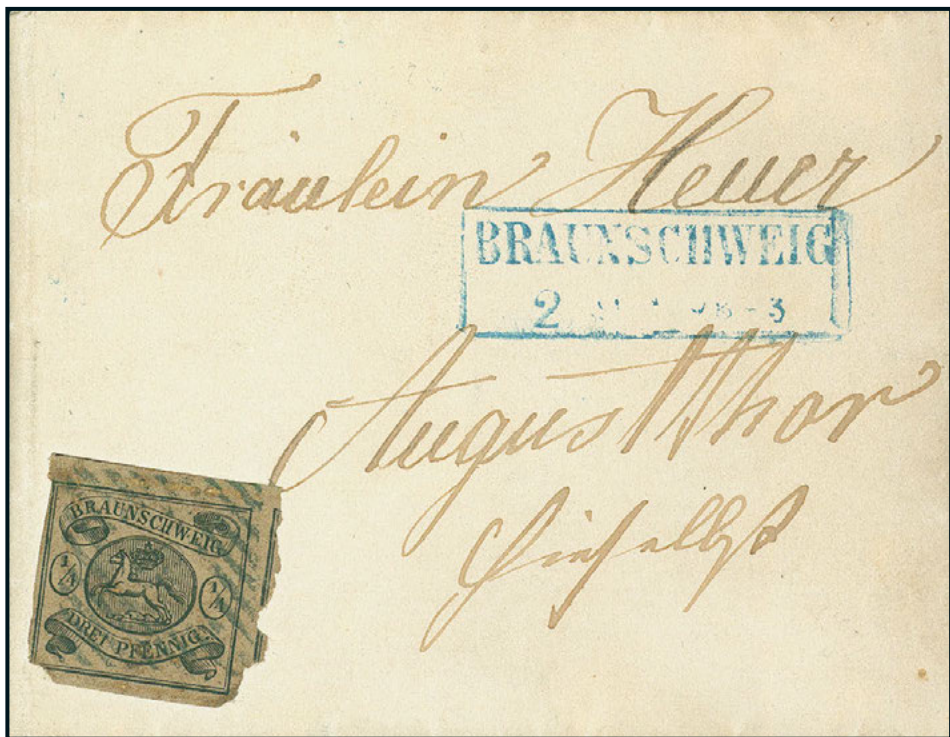 Fräulein Heuer
BRAUNSCHWEIG
2 - 3
Augustthor
hieselbst
BRAUNSCHWEIG
1/4 1/4
DREI PFENNIG